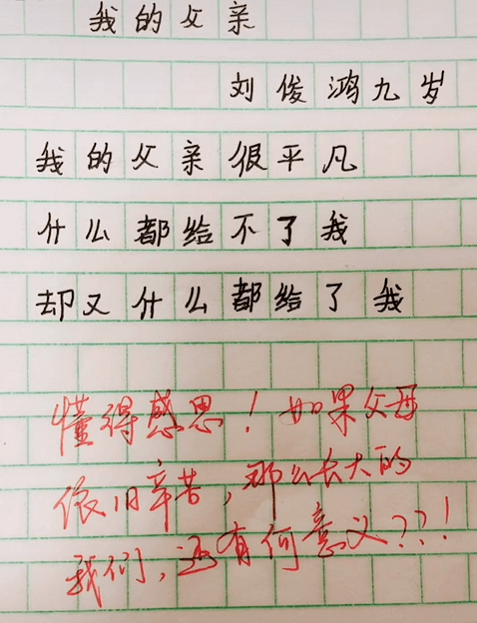 我的父亲
刘俊鸿九岁
我的父亲很平凡
什么都给不了我
却又什么都给了我
懂得感恩！如果父母
依旧辛苦，那么长大的
我们，还有何意义？？！